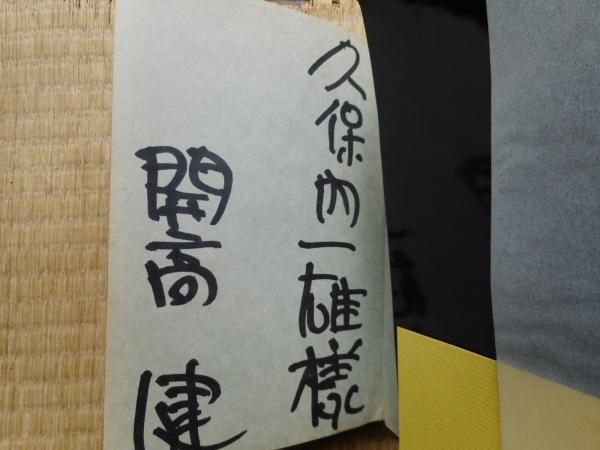 久保内一雄様
開高健